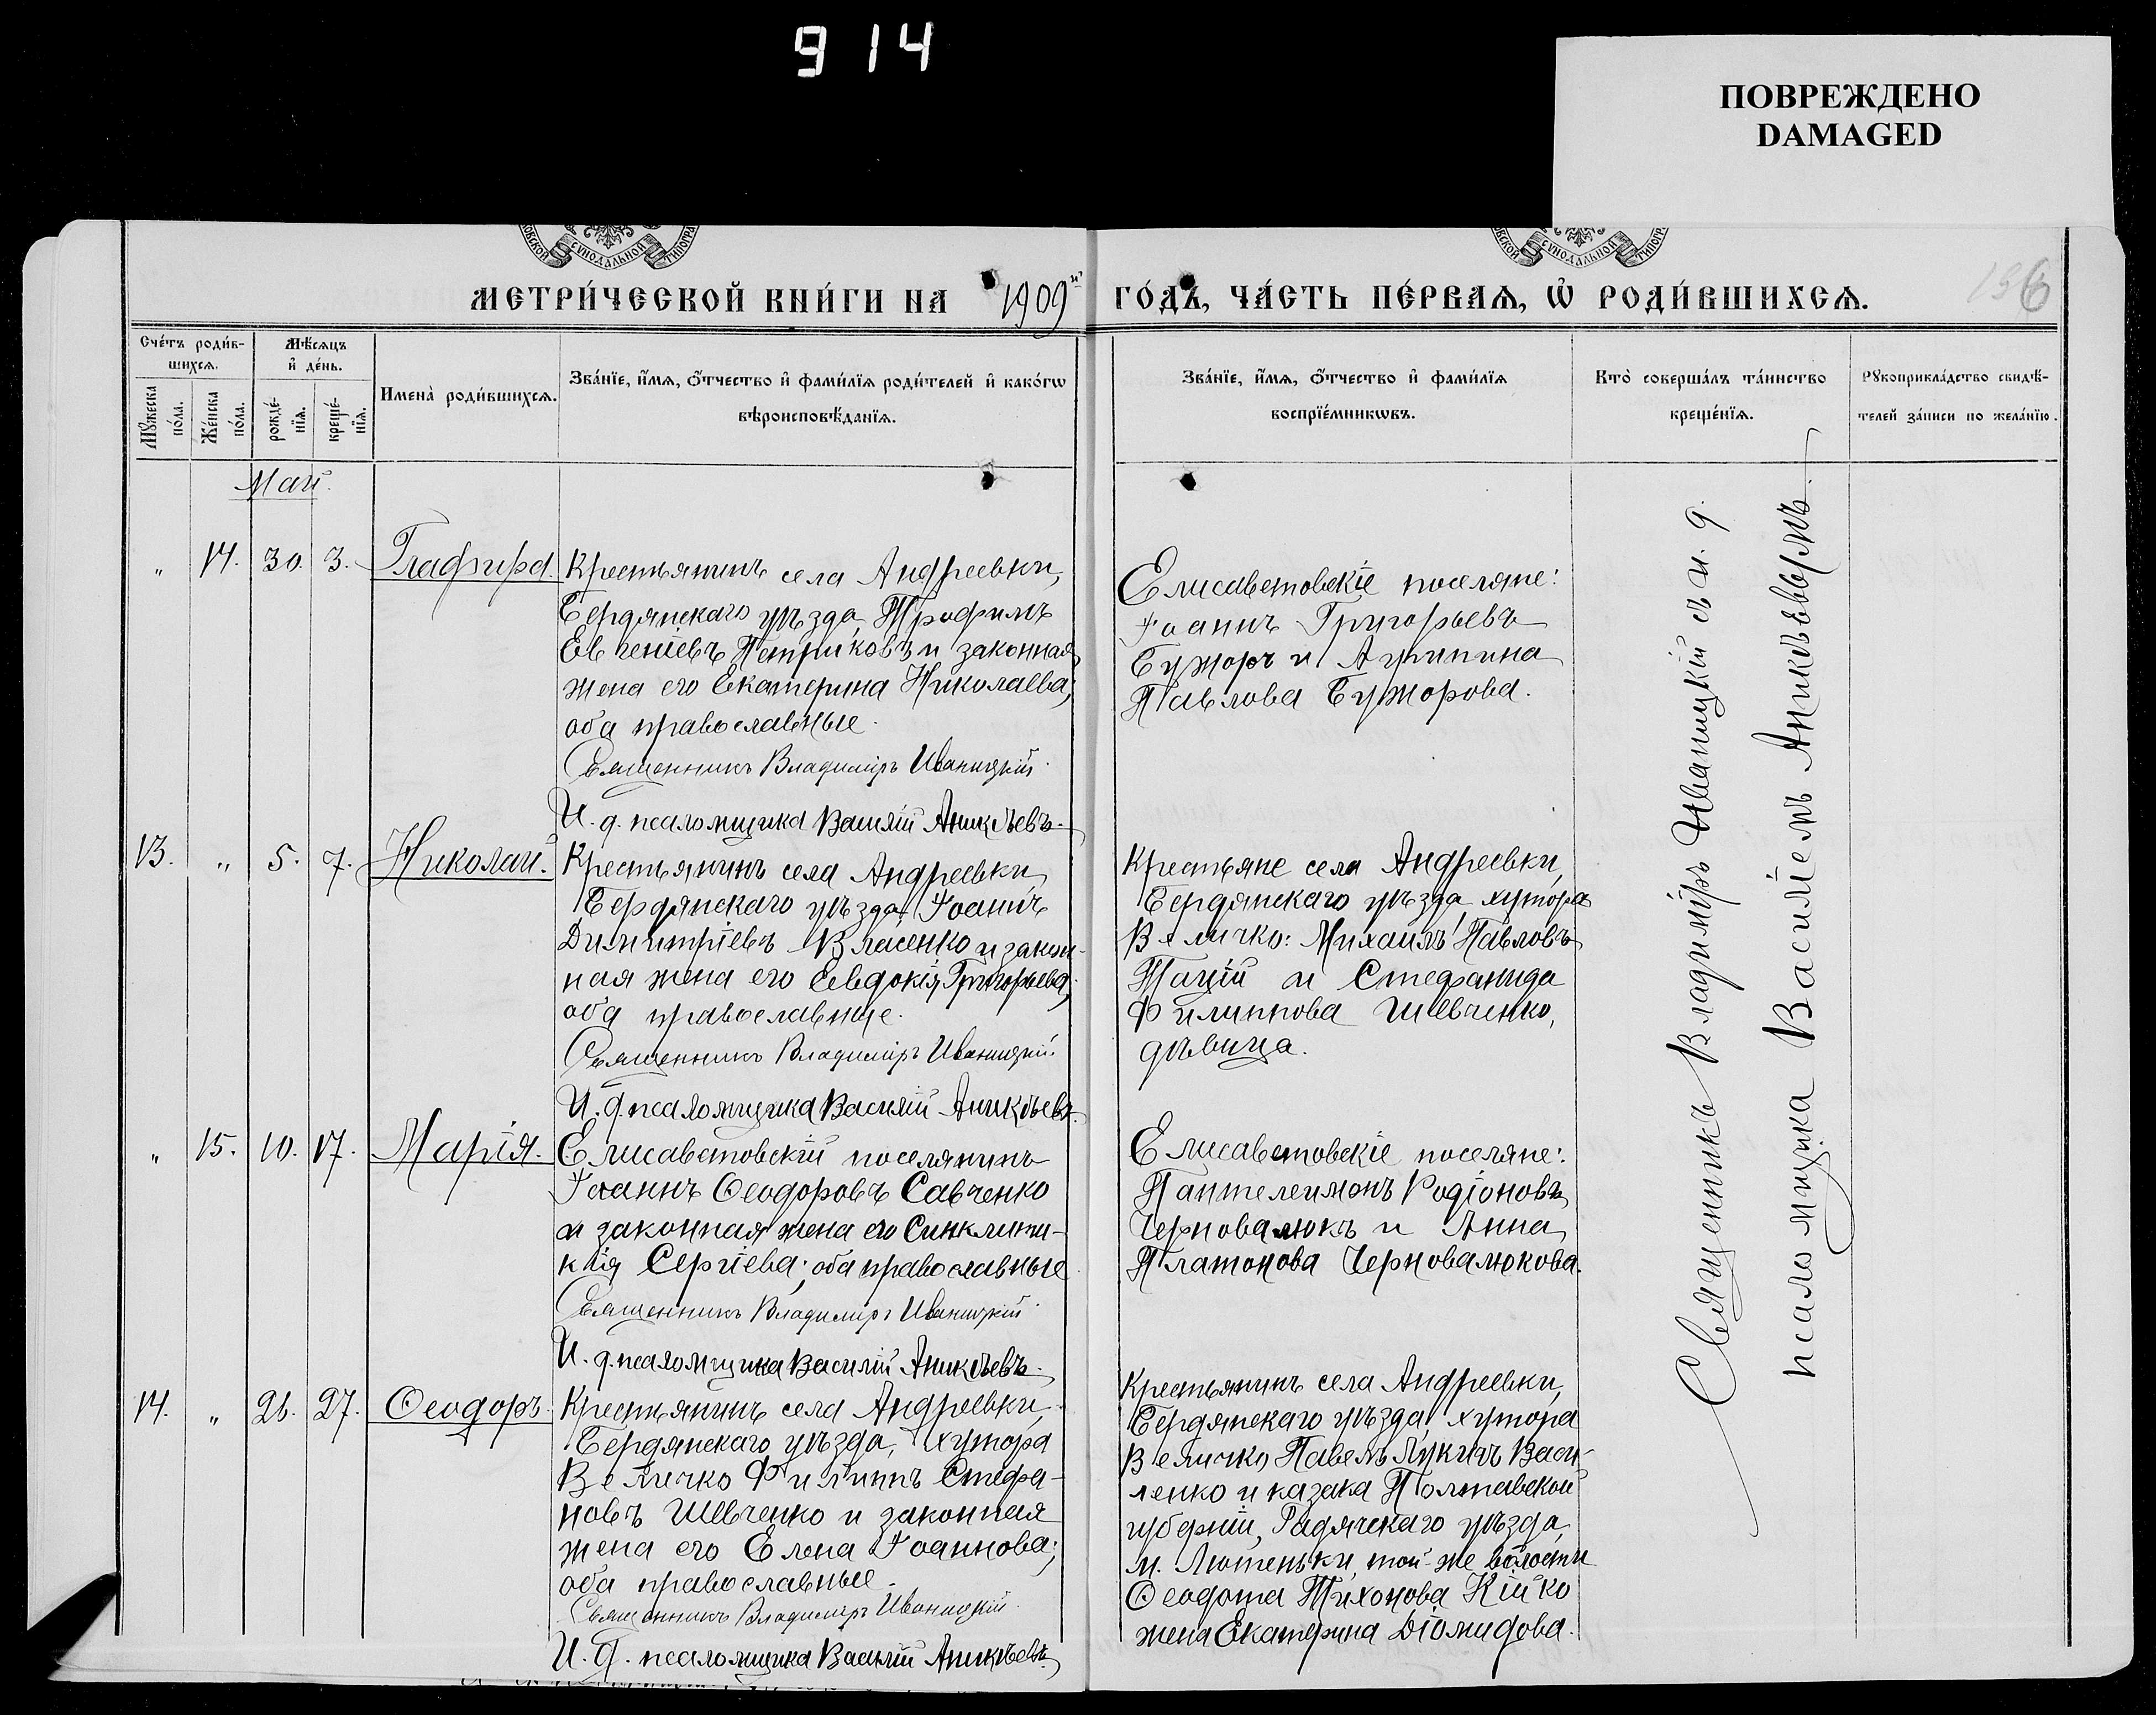 914
ПОВРЕЖДЕНО
DAMAGED
МЕТРИ́ЧЕСКОЙ КНИ́ГИ НА 1909й ГО́ДЪ, ЧА́СТЬ ПЕ́РВАѦ, Ѡ҆ РОДИ́ВШИХСѦ.
Сче́тъ роди́в-
шихсѧ.
Мꙋ́жеска
по́ла.
Же́нска
по́ла.
Мѣ́сѧцъ
и҆ де́нь.
рожде́-
нїѧ.
креще́-
нїѧ.
Имена̀ роди́вшихсѧ.
Зва́нїе, и҆́мѧ, ѻ҆́тчество и҆ фами́лїѧ роди́телей и҆ како́гѡ
вѣроисповѣ́данїѧ.
Зва́нїе, и҆́мѧ, ѻ҆́тчество и҆ фами́лїѧ
воспрїе́мникѡвъ.
Кто̀ соверша́лъ та́инство
креще́нїѧ.
Рꙋкоприкла́дство свидѣ́-
телей за́писи по жела́нїю.
Май.
„ 14. 30. 3. Глафира.
Крестьянинъ села Андреевки,
Бердянскаго уѣзда, Трофимъ
Евгеніевъ Петриковъ и законная
жена его Екатерина Николаева;
оба православные.
Священникъ Владиміръ Иваницкій.
И. д. псаломщика Василій Аникѣевъ.
Елисаветовскіе поселяне:
Іоаннъ Григорьевъ
Бужоръ и Агрипина
Павлова Бужорова.
13. „ 5. 7. Николай.
Крестьянинъ села Андреевки,
Бердянскаго уѣзда, Іоаннъ
Димитріевъ Власенко и закон-
ная жена его Евдокія Григорьева;
оба православные.
Священникъ Владиміръ Иваницкій.
И. д. псаломщика Василій Аникѣевъ.
Крестьяне села Андреевки,
Бердянскаго уѣзда, хутора
Величко: Михаилъ Павловъ
Тацій и Стефанида
Филиппова Шевченко,
дѣвица.
„ 15. 10. 17. Марія.
Елисаветовскій поселянинъ
Іоаннъ Ѳеодоровъ Савченко
и законная жена его Синклити-
кія Сергіева; оба православные.
Священникъ Владиміръ Иваницкій.
И. д. псаломщика Василій Аникѣевъ.
Елисаветовскіе поселяне:
Пантелеимонъ Родіоновъ
Черновалюкъ и Анна
Платонова Черновалюкова.
14. „ 26. 27. Ѳеодоръ.
Крестьянинъ села Андреевки,
Бердянскаго уѣзда, хутора
Величко Филиппъ Стефа-
новъ Шевченко и законная
жена его Елена Іоаннова;
оба православные.
Священникъ Владиміръ Иваницкій.
И. д. псаломщика Василій Аникѣевъ.
Крестьянинъ села Андреевки,
Бердянскаго уѣзда, хутора
Величко, Павелъ Лукичъ Васи-
ленко и казака Полтавской
губерніи, Гадячскаго уѣзда,
м. Лютеньки, той-же волости
Ѳеодота Тихонова Кійко
жена Екатерина Діомидова.
Священникъ Владиміръ Иваницкій съ и. д.
псаломщика Василіемъ Аникѣевымъ.